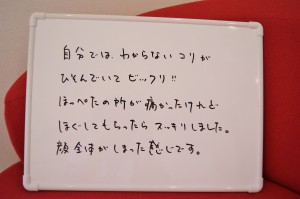 自分では、わからない コリが
ひそんでいて ビックリ!!
ほっぺたの所が痛かったけれど
ほぐしてもらったら スッキリしました。
顔全体がしまった感じです。